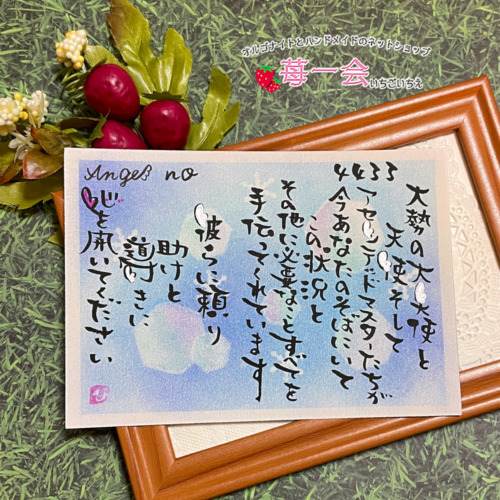 オルゴナイトとハンドメイドのネットショップ
苺一会
いちごいちえ
Angel no
4433
大勢の大天使と
天使そして
アセンデッドマスターたちが
今あなたのそばにいて
この状況と
その他に必要なことすべてを
手伝ってくれています
彼らに頼り
助けと
導きに
心を開いてください
ひ